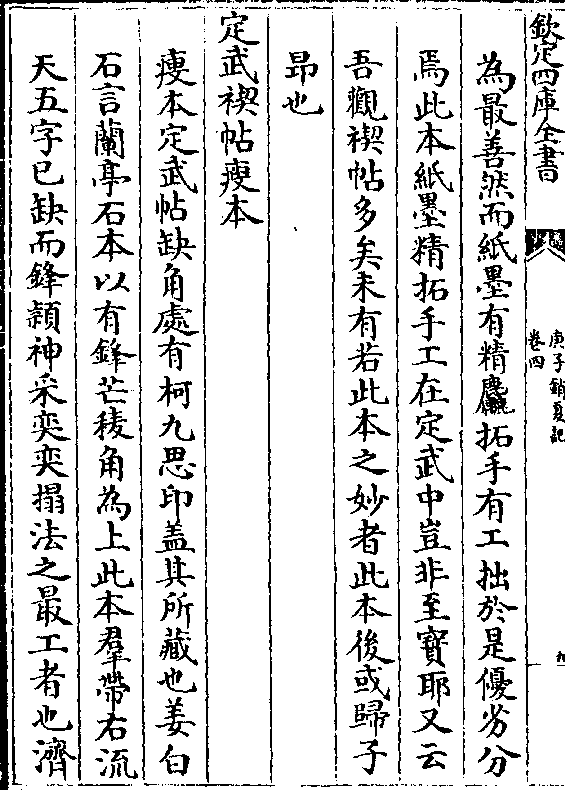 欽定四庫全書
庚子銷夏記
卷四
九
為最善然而紙墨有精麄拓手有工拙於是優劣分
焉此本紙墨精拓手工在定武中豈非至寳耶又云
吾觀禊帖多矣未有若此本之妙者此本後或歸子
昻也
定武禊帖瘦本
瘦本定武帖缺角處有柯九思印盖其所藏也姜白
石言蘭亭石本以有鋒芒稜角為上此本羣帶右流
天五字已缺而鋒穎神采奕奕搨法之最工者也濟